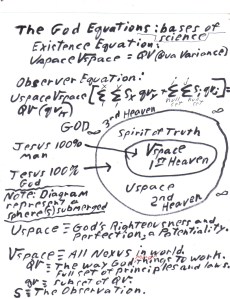 The God Equations: bases of
science
Existence Equation:
Vspace Vspace = QV(@va Variance)
Observer Equation:
Uspace Vspace
QV (gvr)
GOD
3rd Heaven
Spirit of Truth
Jesus 100%
man
Vspace
1st Heaven
Jesus 100%
God
Uspace
2nd
Heaven
∞
Note: Diagram
represent a
sphere(s) submerged
Uspace ≡ God's Righteousness and
Perfection, a Potentiality.
Vspace ≡ All Nexus in world.
QV ≡ The way God to work.
full set of principles and laws.
qv ≡ subset of QV.
S ≡ The Observation.